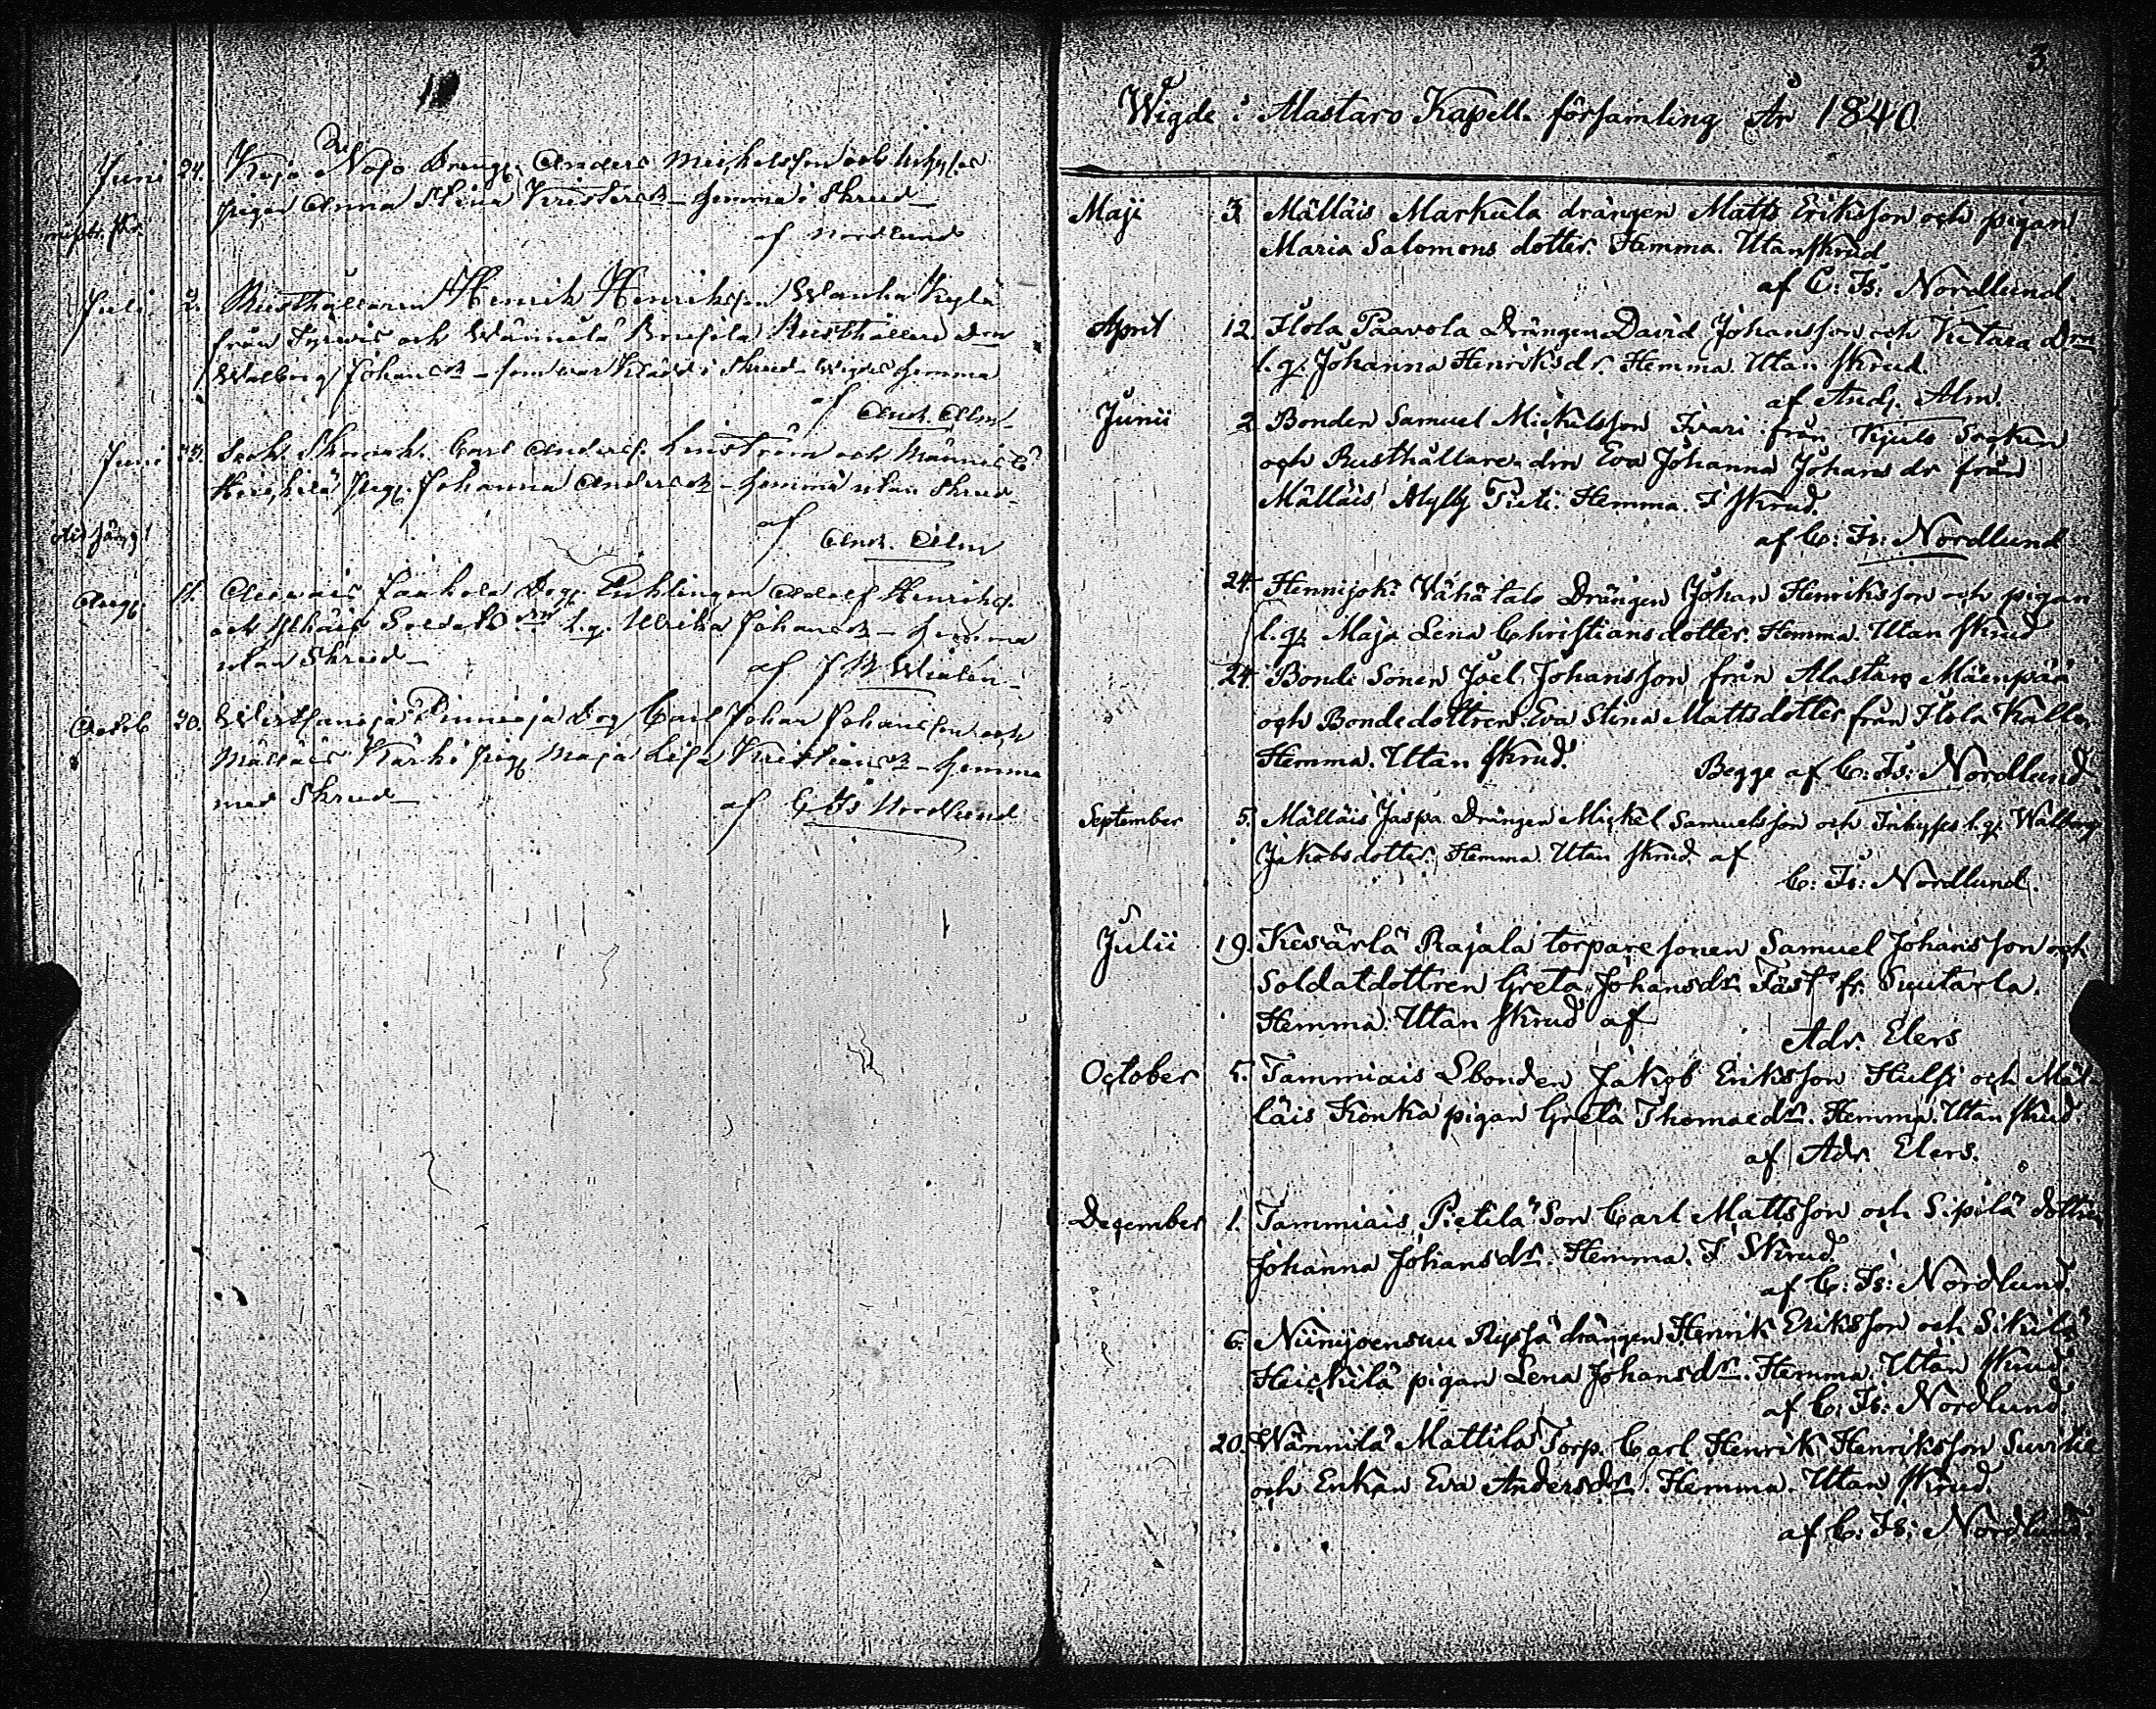 Juni 24. Kojo Nojo Dreng. Anders Michelsson och Inhyses
pigan Anna Stina Kristersdr - hemma i Skrud -
af Nordlund
Juli 2. Rusthållaren Henrik Henriksson Wanha Kylä
från och Wännilä Rusthållare dm
Walborg Johansdr - som war klädd i Skrud - wigdes hemma
af And. Alm
Juni 23. Sock. Skomak. Carl Anders. Linström och Männis
pig. Johanna Andersdr - hemma utan Skrud -
af And. Alm
Aug. 11. Dreng. Adolf Henriks.
och Soldats l. q. Ulrika Johansdr - hemma
utan Skrud -
af Winlén -
Octob 20. Wirtsanoja Pinnioja dreng Carl Johan Johansson och
Mälläis Karhi pig. Maja Lisa Kristiansdr - hemma
med Skrud -
af C Is Nordlund
3.
Wigde i Alastaro Kapell. församling År 1840.
Maji 3. Mälläis Markula drängen Matts Eriksson och pigan
Maria Salomons dotter. Hemma. Utan skrud
af C: Is: Nordlund.
April 12. Ilola Paavola Drängen David Johansson och Kitara dm
l. q. Johanna Henriksdr. Hemma. Utan skrud.
af Andr. Alm.
Junii 2 Bonden Samuel Mickelsson Ivari från Kjulo Socken
och Rusthållare dm Eva Johanna Johans dr från
Mälläis Alyly Pieti. Hemma. I skrud.
af C: Is: Nordlund
24. Hennijoki Vähätalo Drängen Johan Henriksson och pigan
l. q. Maja Lena Christiansdotter. Hemma. Utan skrud
24. Bonde Sonen Joel Johansson från Alastaro Mäenpää
och Bondedottren Eva Stina Mattsdotter från Ilola Kalle,
Hemma. Utan skrud.
Begge af C: Is: Nordlund
September 5. Mälläis Jaspa Drängen Mickel Samuelsson och Inhyses l. q. Walborg
Jakobsdotter. Hemma. Utan skrud af
C: Is: Nordlund.
Julii 19. Kesärlä Rajala torpare sonen Samuel Johansson och
Soldatdottren Greta Johansdr Fäst fr. Suutarla.
Hemma. Utan skrud af
Adr. Elers
October 5. Tammiais Sbonden Jakob Eriksson Hulsi och Mäl-
läis Konka pigan Greta Thomaedr. Hemma. Utan skrud.
af Adr. Elers.
December 1. Tammiais Pietilä Son Carl Mattsson och Sipilä dottren
Johanna Johansdr. Hemma. I Skrud
af C: Is: Nordlund
6. Niinijoensuu Ryssä drängen Henrik Eriksson och Sikilä
Heickilä pigan Lena Johansdr. Hemma. Utan skrud
af C: Is: Nordlund
20. Wännilä Mattila Torp. Carl Henrik Henriksson
och Enkan Eva Andersdr. Hemma. Utan skrud.
af C: Is: Nordlund.